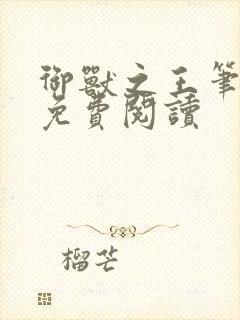 御獸之王筆
免費閱讀
榴芒